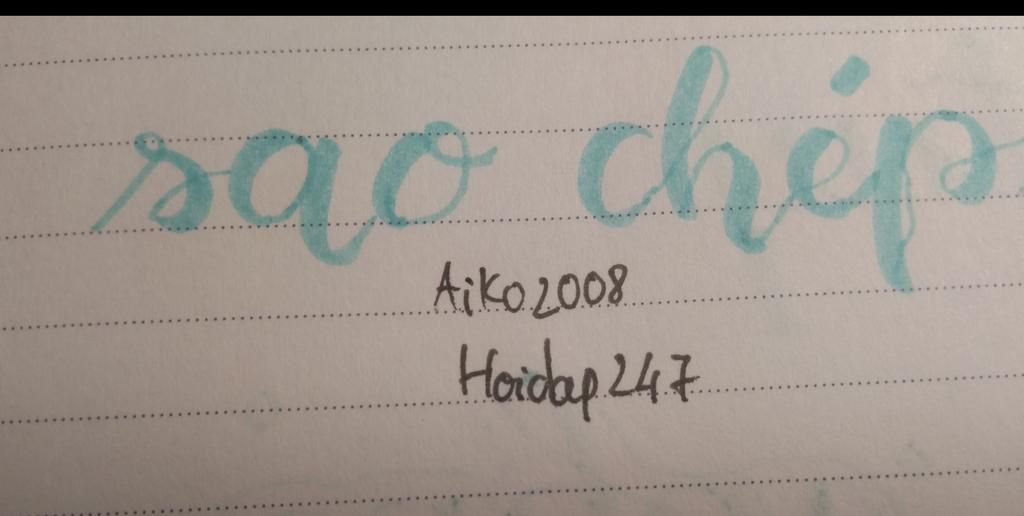 sao chép
Aiko2008
Hoidap247